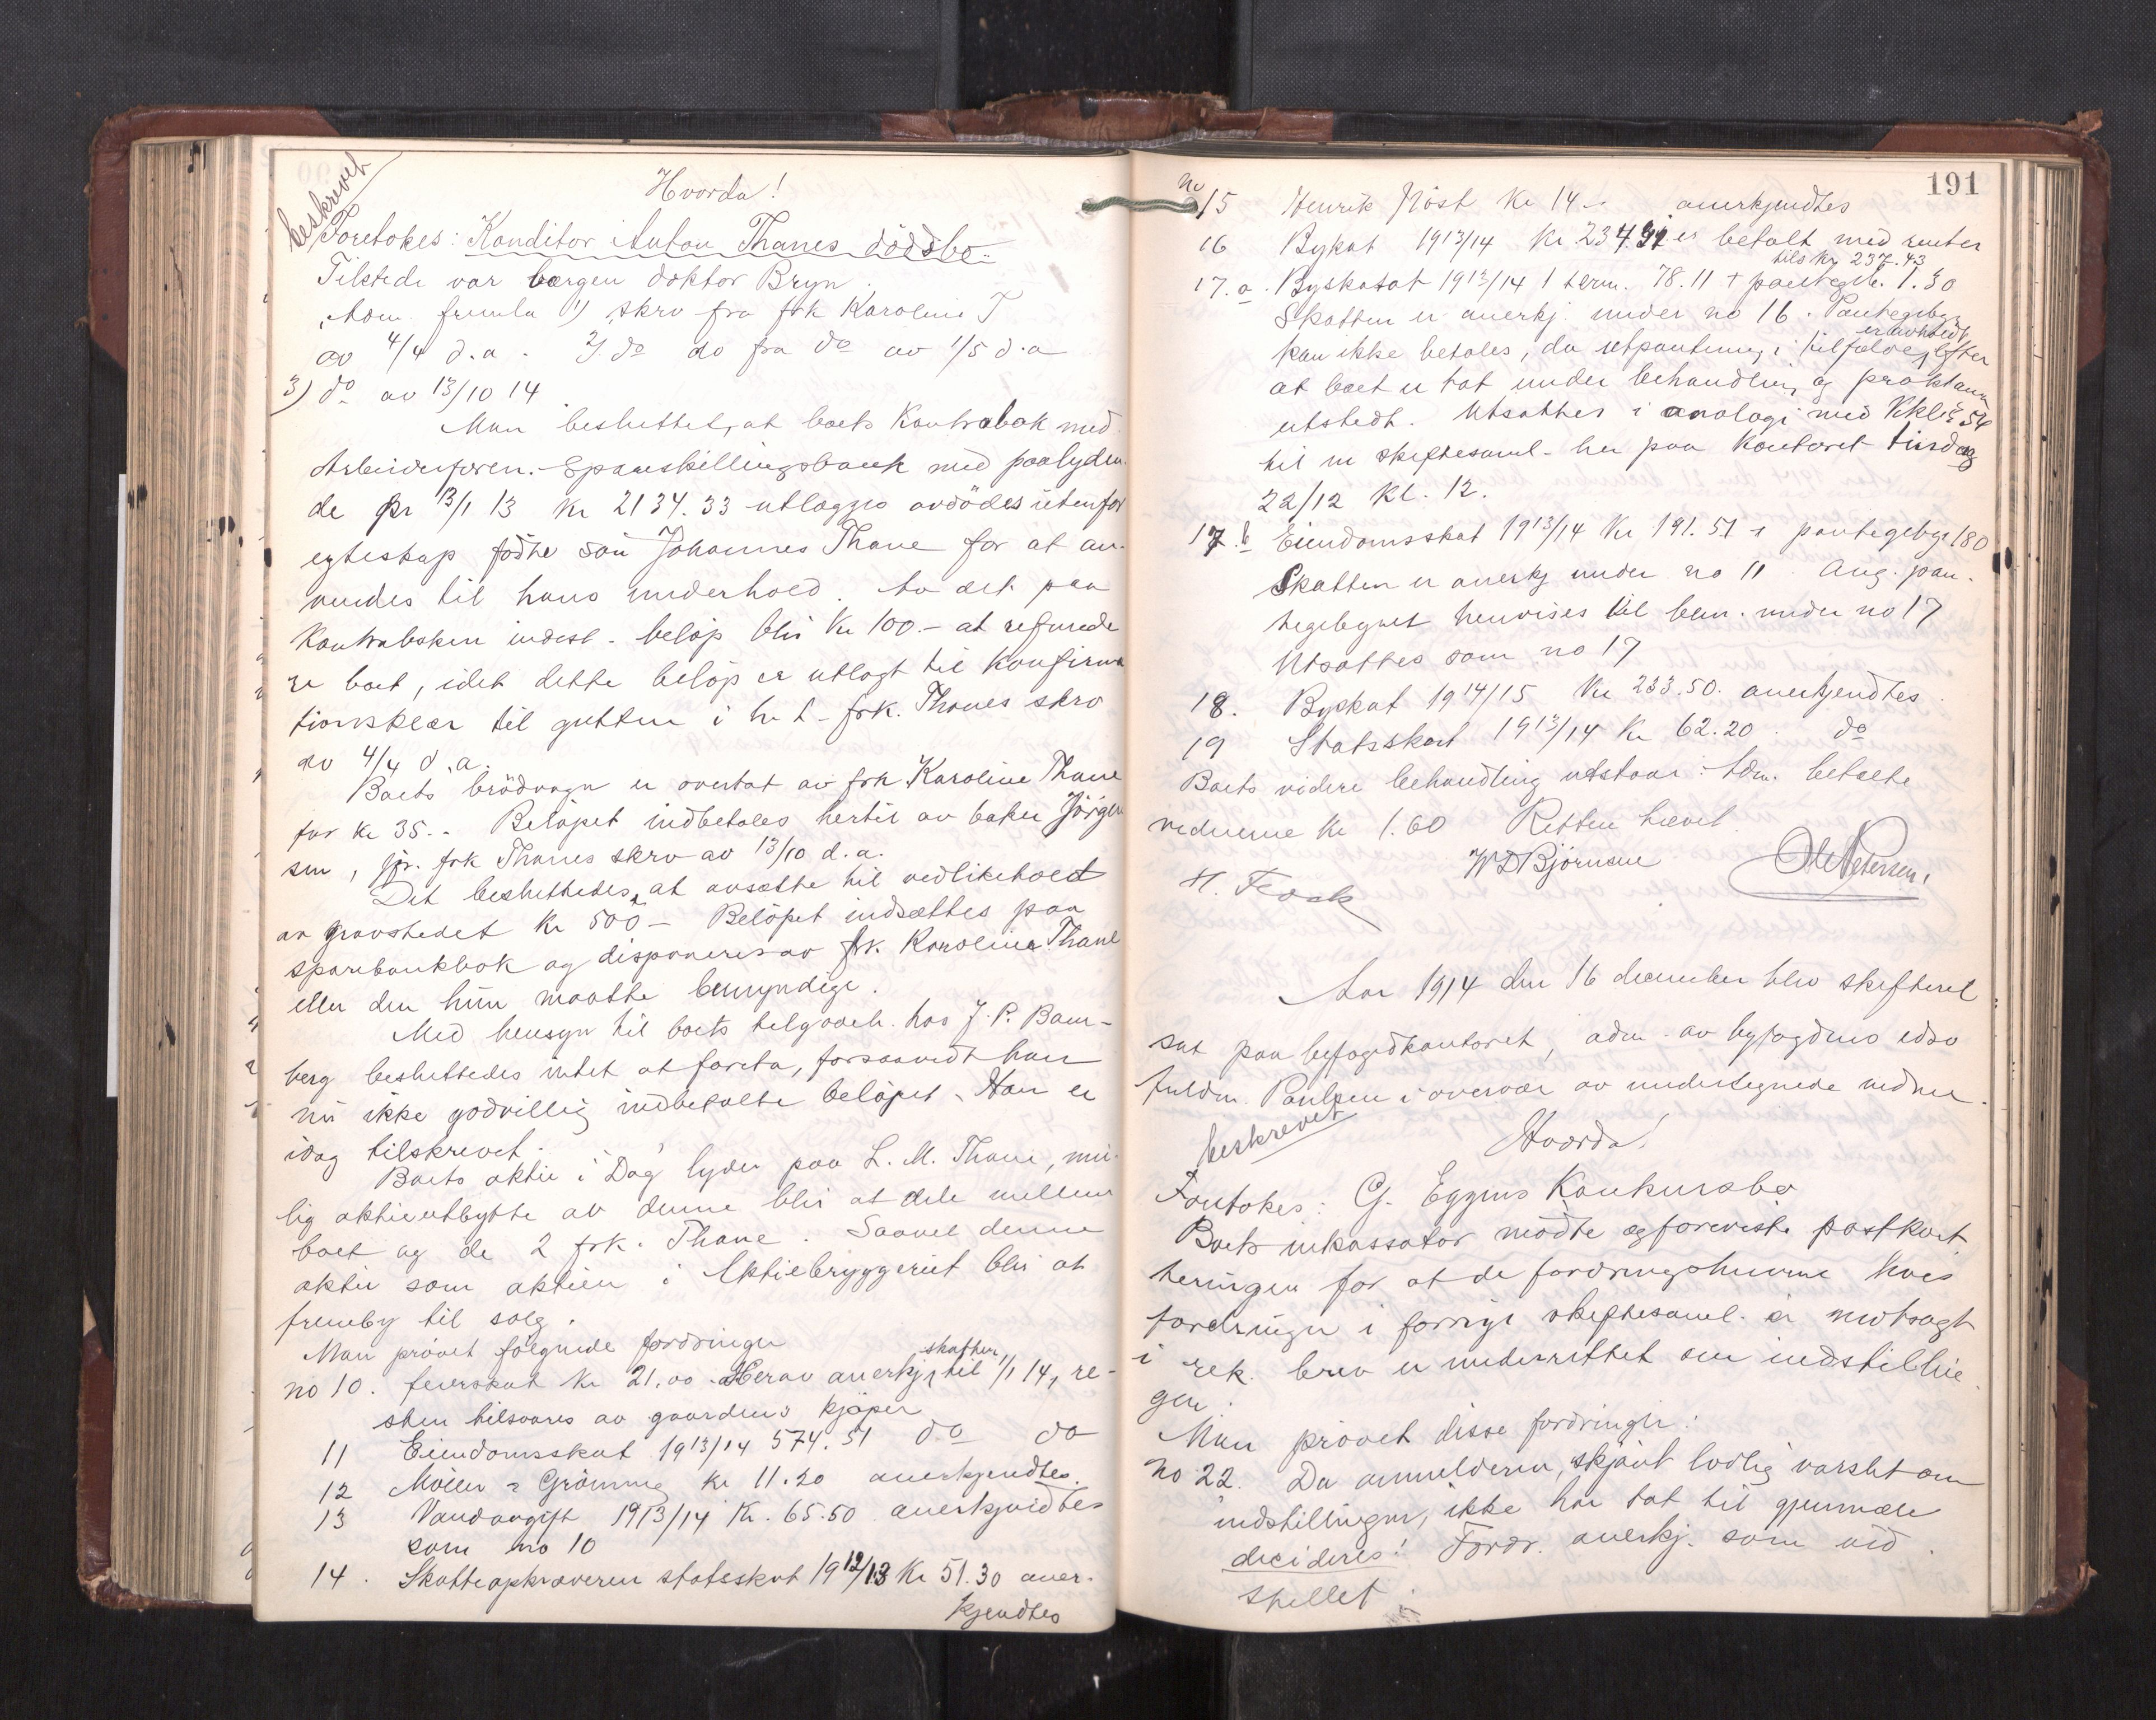 beskrevet
Hvorda!
Foretokes: Konditor Anton Thanes dödsbo.
Tilstede var vergen doktor Bryn.
Adm. fremla 1) skrv fra frk Karoline T
av 4/4 d.a. 2) do do fra do av 1/5 d.a
3) do av 13/10 14.
Man besluttet, at boets Kontrabok med
Arbeiderforen. Spareskillingsbank med paalyden-
de pr 13/1 13 Kr 2134.33 utlægges avdödes utenfor
egteskap födte sön Johannes Thane for at an-
vendes til hans underhold. Av det paa
Kontraboken indest. belöp blir Kr 100.- at refunde
re boet, idet dette belöp er utlagt til Konfirma
tionsklær til gutten i h. t. frk. Thanes skrv
av 4/4 d.a.
Boets brödvogn er overtat av frk Karoline Thane
for Kr 35.- Belöpet indbetales hertil av baker Jörgen
sen, jfr. frk Thanes skrv av 13/10 d.a.
Det besluttedes, at avsætte til vedlikehold
av gravstedet Kr 500- Belöpet indsættes paa
sparebankbok og disponeres av frk. Karoline Thane
eller den hun maatte bemyndige.
Med hensyn til boets tilgodeh. hos J. P. Bam-
berg besluttedes intet at foreta, forsaavidt han
nu ikke godvillig indbetalte belöpet. Han er
idag tilskrevet.
Boets aktie i "Dag" lyder paa L. M. Thane, mu-
lig aktieutbytte av denne blir at dele mellem
boet og de 2 frk. Thane. Saavel denne
aktie som aktien i Aktiebryggeriet blir at
fremby til salg.
Man prövet fölgende fordringer
no 10. feierskat Kr 21.00. Herav anerkj. skatten til 1/1 14, re-
sten tilsvares av gaardens kjöper
11 Eiendomsskat 1913/14 574.51 do do
12 Möller & Grönning Kr 11.20 anerkjendtes.
13 Vandavgift 1913/14 Kr. 65.50 anerkjendtes
som no 10
14. Skatteopkræveren statsskat 1912/13 Kr 51.30 aner-
kjendtes
191
no 15 Henrik Röst Kr 14.- anerkjendtes
16 Byskat 1913/14 Kr 234.91 er betalt med renter
tils Kr 237.43
17.a. Byskatat 1913/14 1 term. 78.11 + pantegeb. 1.30
Skatten er anerkj. under no 16. Pantegebyr
kan ikke betales, da utpantning i tilfælde er avholdt efter
at boet er tat under behandling og proklama
utstedt. Utsattes i analogi med Kkl § 54
til ny skiftesaml. her paa Kontoret tirsdag
22/12 Kl. 12.
17.b Eiendomsskat 1913/14 Kr 191.51 + pantegebyr 180
Skatten er anerkj under no 11. Ang. pan-
tegebyret henvises til bem. under no 17
Utsattes som no 17
18. Byskat 1914/15 Kr 233.50. anerkjendtes.
19 Statsskat 1913/14 Kr 62.20. do
Boets videre behandling utstaar. Adm. betalte
vidnerne Kr 1.60 Retten hævet.
H. Fook W D Björnsen Ole Petersen.
Aar 1914 den 16 december blev skifteret
sat paa byfogedkontoret, adm. av byfogdens edsv
fuldm. Paulsen i overvær av undertegnede vidner.
beskrevet
Hvorda!
Foretokes: G. Eggens Konkursbo
Boets inkassator mödte og foreviste postkvit
teringen for at de fordringshavere hvis
fordringer i forrige skiftesaml. er motsagt
i rek. brev er underrettet om indstillin
gen.
Man prövet disse fordringer:
no 22. Da anmelderen, skjönt lovlig varslet om
indstillingen, ikke har tat til gjenmæle
decideres: Fordr. anerkj. som uid
stillet.